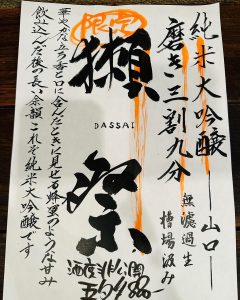 純米大吟醸 山口
磨き三割九分
無濾過生
槽場汲み
限定
獺祭
DASSAI
華やかな立ち香と口に含んだときに見せる蜂蜜のような甘み
飲込んだ後の長い余韻これぞ純米大吟醸です